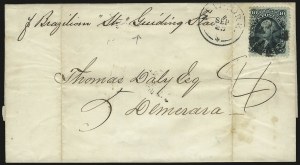 p Brazilian "Str." Guiding Star
SEP
Thomas Daly Esq
Demerara